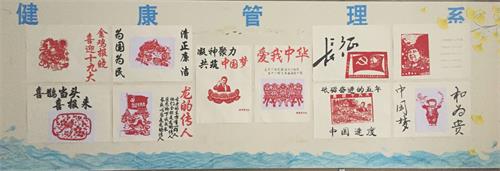 健康管理系
金鸡报晓
喜迎十九大
为国为民
清正廉洁
凝神聚力
共筑中国梦
爱我中华
长征
喜鹊当头
喜报来
龙的传人
砥砺奋进的五年
中国速度
中国梦
和为贵